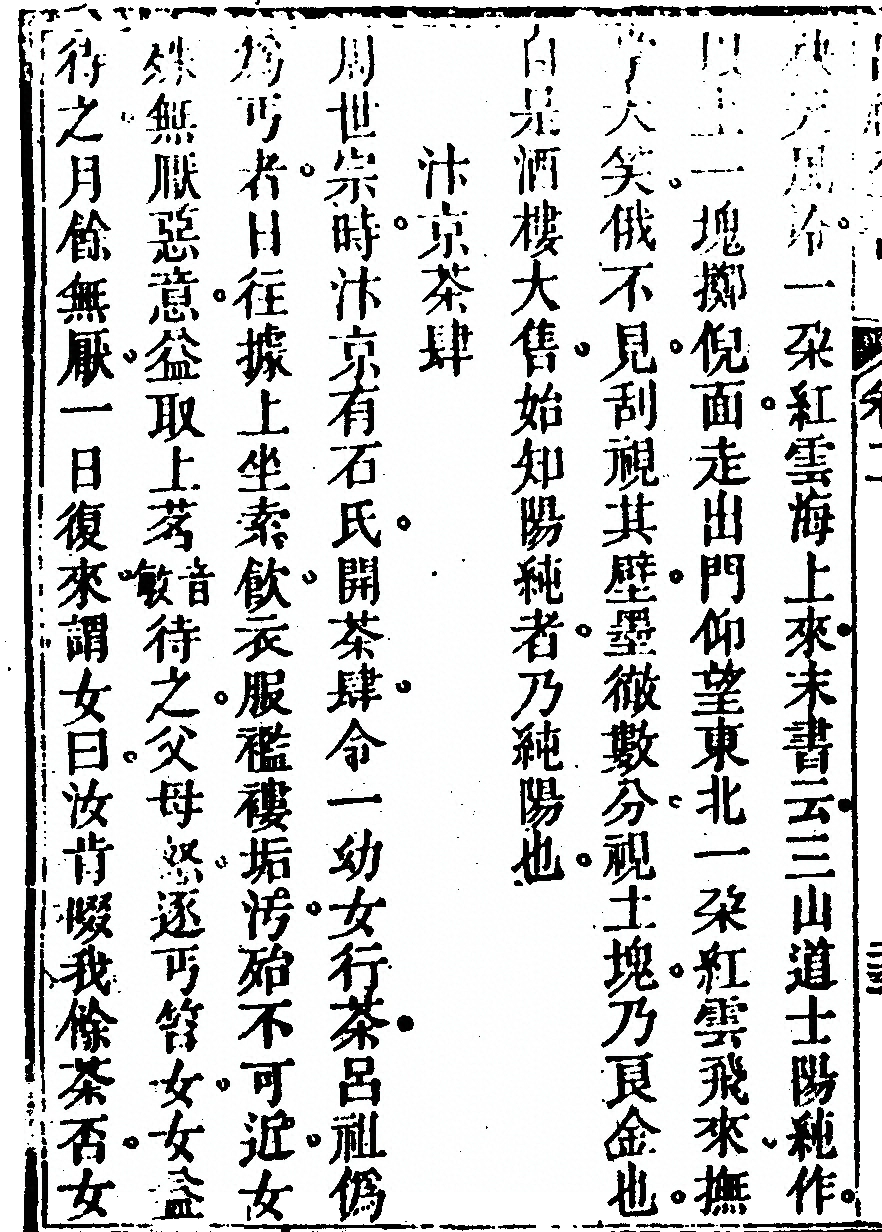 袂天風冷一朶紅雲海上來末書云三山道士陽純作
以土一塊擲倪面走出門仰望東北一朶紅雲飛來撫
掌大笑俄不見刮視其壁墨徹數分視土塊乃良金也
自是酒樓大售始知陽純者乃純陽也
汴京茶肆
周世宗時汴京有石氏開茶肆令一幼女行茶呂祖僞
爲丐者日往據上坐索飲衣服襤褸垢汚殆不可近女
殊無厭惡意益取上茗音敏待之父母怒逐丐笞女女益
待之月餘無厭一日復來謂女曰汝肯啜我餘茶否女